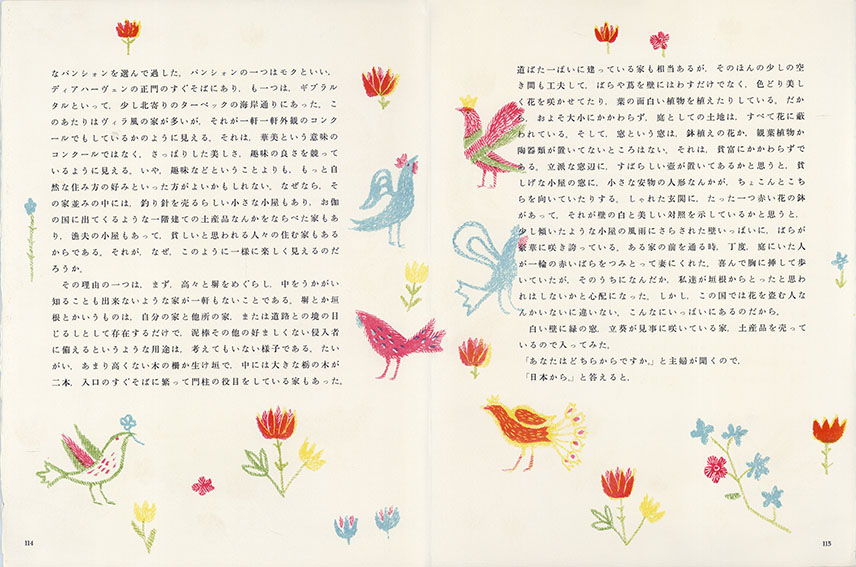 なパンションを選んで過した。パンションの一つはモクといい、
ディアハーヴェンの正門のすぐそばにあり、も一つは、ギブラル
タルといって、少し北寄りのターベックの海岸通りにあった。こ
のあたりはヴィラ風の家が多いが、それが一軒一軒外観のコンク
ールでもしているかのように見える。それは、華美という意味の
コンクールではなく、さっぱりした美しさ、趣味の良さを競って
いるように見える。いや、趣味などということよりも、もっと自
然な住み方の好みといった方がよいかもしれない。なぜなら、そ
の家並みの中には、釣り針を売るらしい小さな小屋もあり、お伽
の国に出てくるような一階建ての土産品なんかをならべた家もあ
り、漁夫の小屋もあって、貧しいと思われる人々の住む家もある
からである。それが、なぜ、このように一様に楽しく見えるのだ
ろうか。
その理由の一つは、まず、高々と塀をめぐらし、中をうかがい
知ることも出来ないような家が一軒もないことである。塀とか垣
根とかいうものは、自分の家と他所の家、または道路との境の目
じるしとして存在するだけで、泥棒その他の好ましくない侵入者
に備えるというような用途は、考えてもいない様子である。たい
がい、あまり高くない木の柵か生け垣で、中には大きな栃の木が
二本、入口のすぐそばに繁って門柱の役目をしている家もあった。
114
道ばた一ぱいに建っている家も相当あるが、そのほんの少しの空
き間も工夫して、ばらや蔦を壁にはわすだけでなく、色どり美し
く花を咲かせてたり、葉の面白い植物を植えたりしている。だか
ら、およそ大小にかかわらず、庭としての土地は、すべて花に蔽
われている。そして、窓という窓は、鉢植えの花か、観葉植物か
陶器類が置いてないところはない。それは、貧富にかかわらずで
ある。立派な窓辺に、すばらしい壺が置いてあるかと思うと、貧
しげな小屋の窓に、小さな安物の人形なんかが、ちょこんとこち
らを向いていたりする。しゃれた玄関に、たった一つ赤い花の鉢
があって、それが壁の白と美しい対照を示しているかと思うと、
少し傾いたような小屋の風雨にさらされた壁いっぱいに、ばらが
豪華に咲き誇っている。ある家の前を通る時、丁度、庭にいた人
が一輪の赤いばらをつみとって妻にくれた。喜んで胸に挿して歩
いていたが、そのうちになんだか、私達が垣根からとったと思わ
れはしないかと心配になった。しかし、この国では花を盗む人な
んかいないに違いない。こんなにいっぱいにあるのだから。
白い壁に緑の窓、立葵が見事に咲いている家、土産品を売って
いるので入ってみた。
「あなたはどちらからですか。」と主婦が聞くので、
「日本から。」と答えると、
115